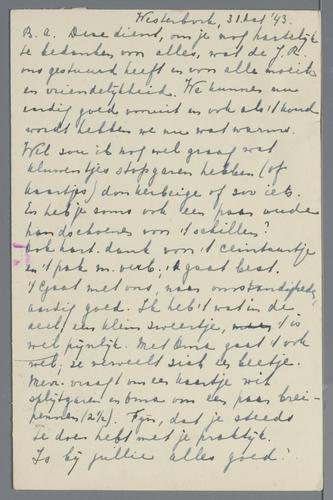 Westerbork, 31 Oct '43.
B. a. Deze dient, om je nog hartelijk
te bedanken voor alles, wat de J.R.
ons gestuurd heeft en voor alle moeite
en vriendelijkheid. We kunnen nu
aardig goed vooruit en ook als 't koud
wordt hebben we nu wat warms.
Wel zou ik nog wel graag wat
kluwentjes stopgaren hebben (of
kaartjes) donkerbeige of zoo iets.
En heb je soms ook een paar oude
handschoenen voor 't schillen?
Ook hart. dank voor 't ceintuurtje
en 't pak m. verb.; 't gaat best.
't Gaat met ons, naar omstandigheden,
aardig goed. Ik heb 't wat in de
een klein zweertje, 't is
wel pijnlijk. Met Oma gaat 't ook
wel; ze verveelt zich een beetje.
Mevr. vraagt om een kaartje wit
splijtgaren en Oma om een paar brei-
pennen (2½). Fijn, dat je steeds
te doen hebt met je praktijk.
Is bij jullie alles goed?